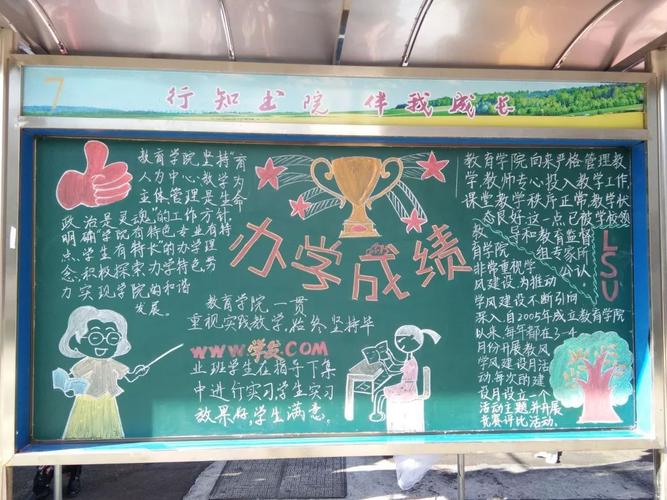 7
行知书院 伴我成长
教育学院坚持"育
人为中心,教学为
主体管理是生命
政治是灵魂"的工作方针,
明确"学院有特色专业有特
点、学生有特长"的办学理
念,积极探索办学特色,努
力实现学院的和谐
发展。
办学成绩
教育学院一贯
重视实践教学,始终坚持毕
WWW.学发.COM
业班学生在指导下集
中进行实习学生实习
效果好,学生满意。
教育学院向来严格管理教
学,教师专心投入教学工作,
课堂教学秩序正常,教学状
态良好这一点,已被学校领
导和教育监督
组专家所
公认
教育学院
非常重视学
风建设,为推动
学风建设不断引向
深入自2005年成立教育学院
以来每年都在3-4
月份开展教风
学风建设月活
动,每次的建
设月设立一个
活动主题,并开展
竞赛评比活动。
LSU